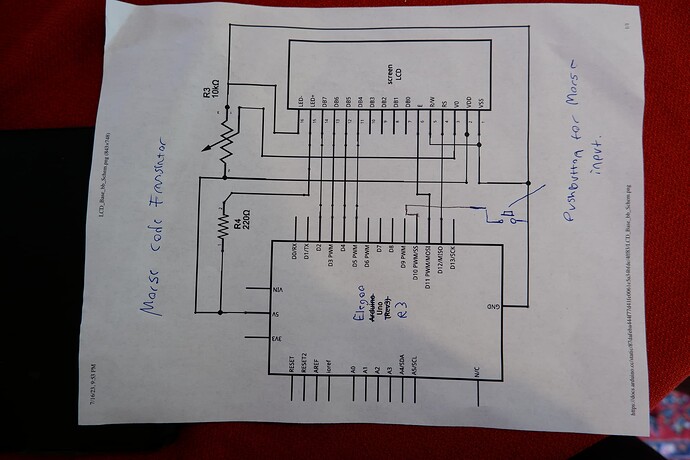 7/16/23, 9:53 PM
LCD_Base_bb_Schem.png (843×748)
Morse Code Translator
R3
10kΩ
R4
220Ω
screen
LCD
LED-
LED+
DB7
DB6
DB5
DB4
DB3
DB2
DB1
DB0
E
R/W
RS
V0
VDD
VSS
16
15
14
13
12
11
D0/RX
D1/TX
D2
D3 PWM
D4
D5 PWM
D6 PWM
D7
D8
D9 PWM
D10 PWM/SS
D11 PWM/MOSI
D12/MISO
D13/SCK
VIN
5V
3V3
Elegoo
Arduino
Uno
(Rev3)
R3
RESET
RESET2
AREF
ioref
A0
A1
A2
A3
A4/SDA
A5/SCL
N/C
GND
Pushbutton for Morse
input.
1/1